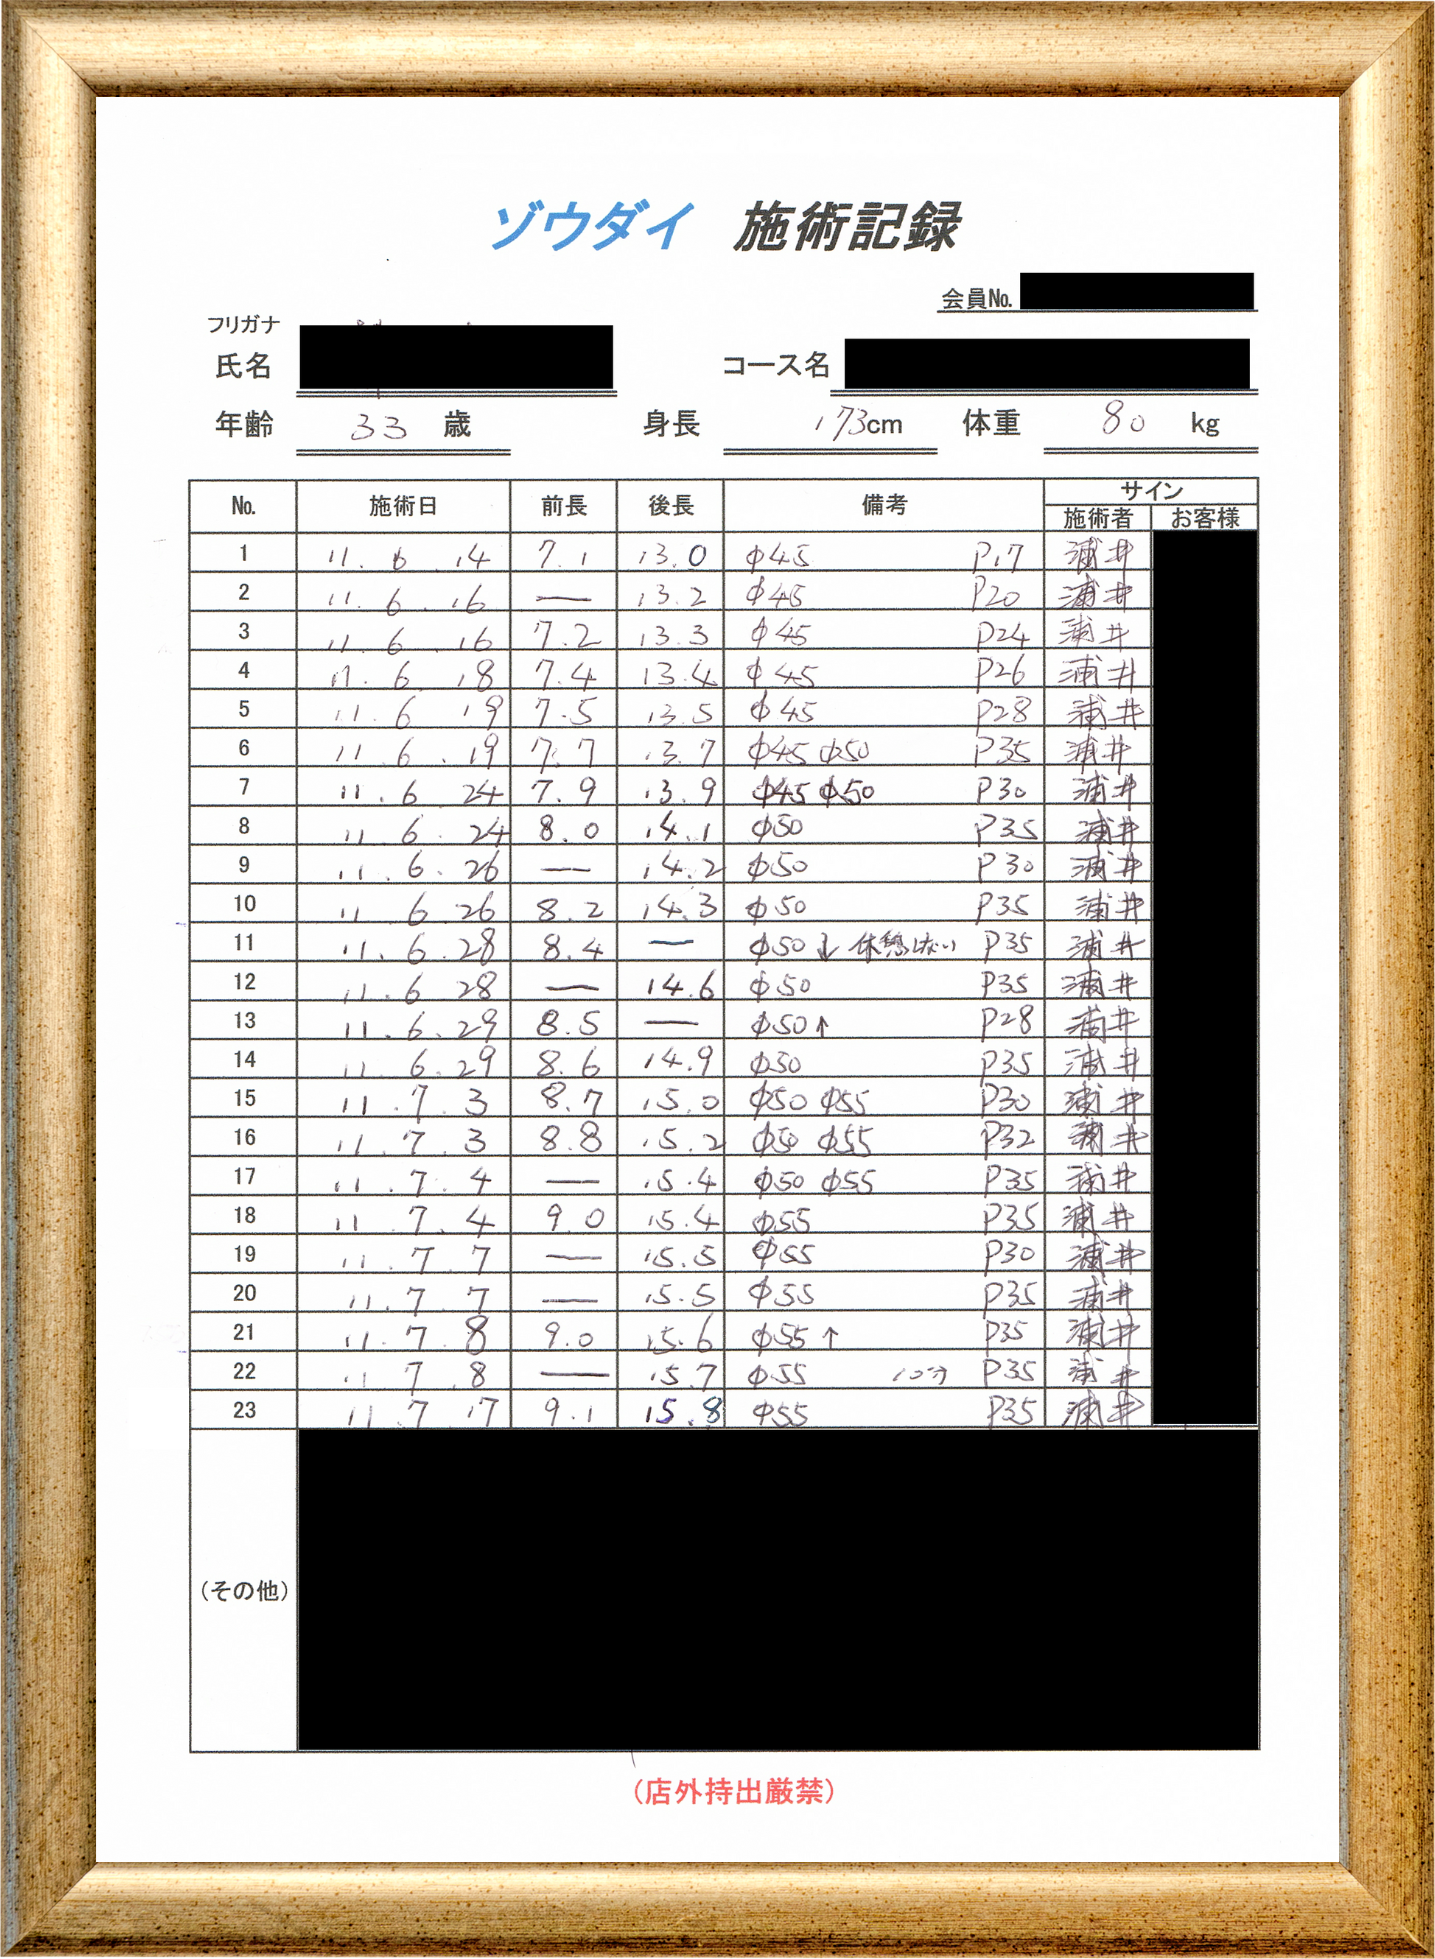 ゾウダイ 施術記録
会員No.
フリガナ
氏名 コース名
年齢 33 歳 身長 173cm 体重 80 kg
No. 施術日 前長 後長 備考 サイン
施術者 お客様
1 11. 6 .14 7.1 13.0 φ45 P17 浦井
2 11. 6 .16 — 13.2 φ45 P20 浦井
3 11. 6 .16 7.2 13.3 φ45 P24 浦井
4 11. 6 .18 7.4 13.4 φ45 P26 浦井
5 11. 6 19 7.5 13.5 φ45 P28 浦井
6 11. 6 .19 7.7 13.7 φ45 φ50 P35 浦井
7 11. 6 24 7.9 13.9 φ45 φ50 P30 浦井
8 11 6 . 24 8.0 14.1 φ50 P35 浦井
9 11. 6. 26 — 14.2 φ50 P30 浦井
10 11. 6 .26 8.2 14.3 φ50 P35 浦井
11 11. 6.28 8.4 — φ50 ↓ 休憩はい P35 浦井
12 11. 6 28 — 14.6 φ50 P35 浦井
13 11. 6.29 8.5 — φ50↑ P28 浦井
14 11 6.29 8.6 14.9 φ50 P35 浦井
15 11 .7. 3 8.7 15.0 φ50 φ55 P30 浦井
16 11. 7. 3 8.8 15.2 φ50 φ55 P32 浦井
17 11. 7. 4 — 15.4 φ50 φ55 P35 浦井
18 11 .7. 4 9.0 15.4 φ55 P35 浦井
19 11. 7. 7 — 15.5 φ55 P30 浦井
20 11. 7. 7 — 15.5 φ55 P35 浦井
21 11. 7. 8 9.0 15.6 φ55 ↑ P35 浦井
22 11 7 .8 — 15.7 φ55 10分 P35 浦井
23 11 .7 .17 9.1 15.8 φ55 P35 浦井
（その他）
（店外持出厳禁）